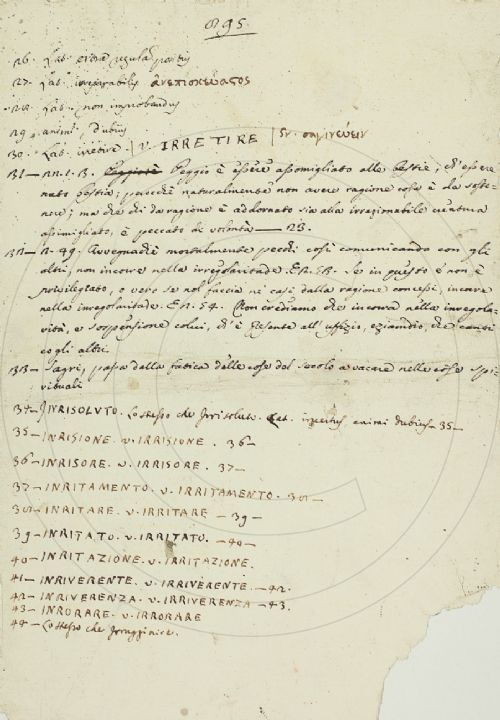 895.
26. Lat. extra regulas positus
27. Lat. irreparabilis ἀνεπισκεύαςος
28. Lat. non improbandus
29. animi, dubius
30. Lat. irretire | v. IRRETIRE | Gr. σαγινεύειν
31— nn. s. B. Peggio è essere assomigliato alle bestie, ch' essere
nato bestia; perocchè naturalmente non avere ragione cosa è da soste-
nere; ma che chi da ragione è adornato sia alla irrazionabile creatura
assimigliato, è peccato di volontà — 23.
32— n. 49. Avvegnachè mortalmente pecchi così comunicando con gli
altri, non incorre nella irregolaritade. E n. 53. Se in questo è non è
privilegiato, o vero se nol faccia ne' casi dalla ragione concessi, incorre
nella irregolaritade. E n. 54. Non crediamo che incorra nella irregola-
rità, o sospensione colui, ch' è assente all' uffizio, eziandio che canti
co gli altri.
33— Sagri, passa dalla fatica delle cose del secolo a vacare nelle cose spi-
rituali
34— INRISOLUTO. Lo stesso che Irrisoluto. Lat. animi dubius— 35—
35— INRISIONE. v. IRRISIONE. 36—
36— INRISORE. v. IRRISORE. 37—
37— INRITAMENTO. v. IRRITAMENTO. 38—
38— INRITARE. v. IRRITARE — 39—
39— INRITATO. v. IRRITATO. —40—
40— INRITAZIONE. v. IRRITAZIONE.
41— INRIVERENTE. v. IRRIVERENTE. —42.
42— INRIVERENZA. v. IRRIVERENZA —43.
43— INRORARE. v. IRRORARE
44— Lo stesso che Irrugginire.